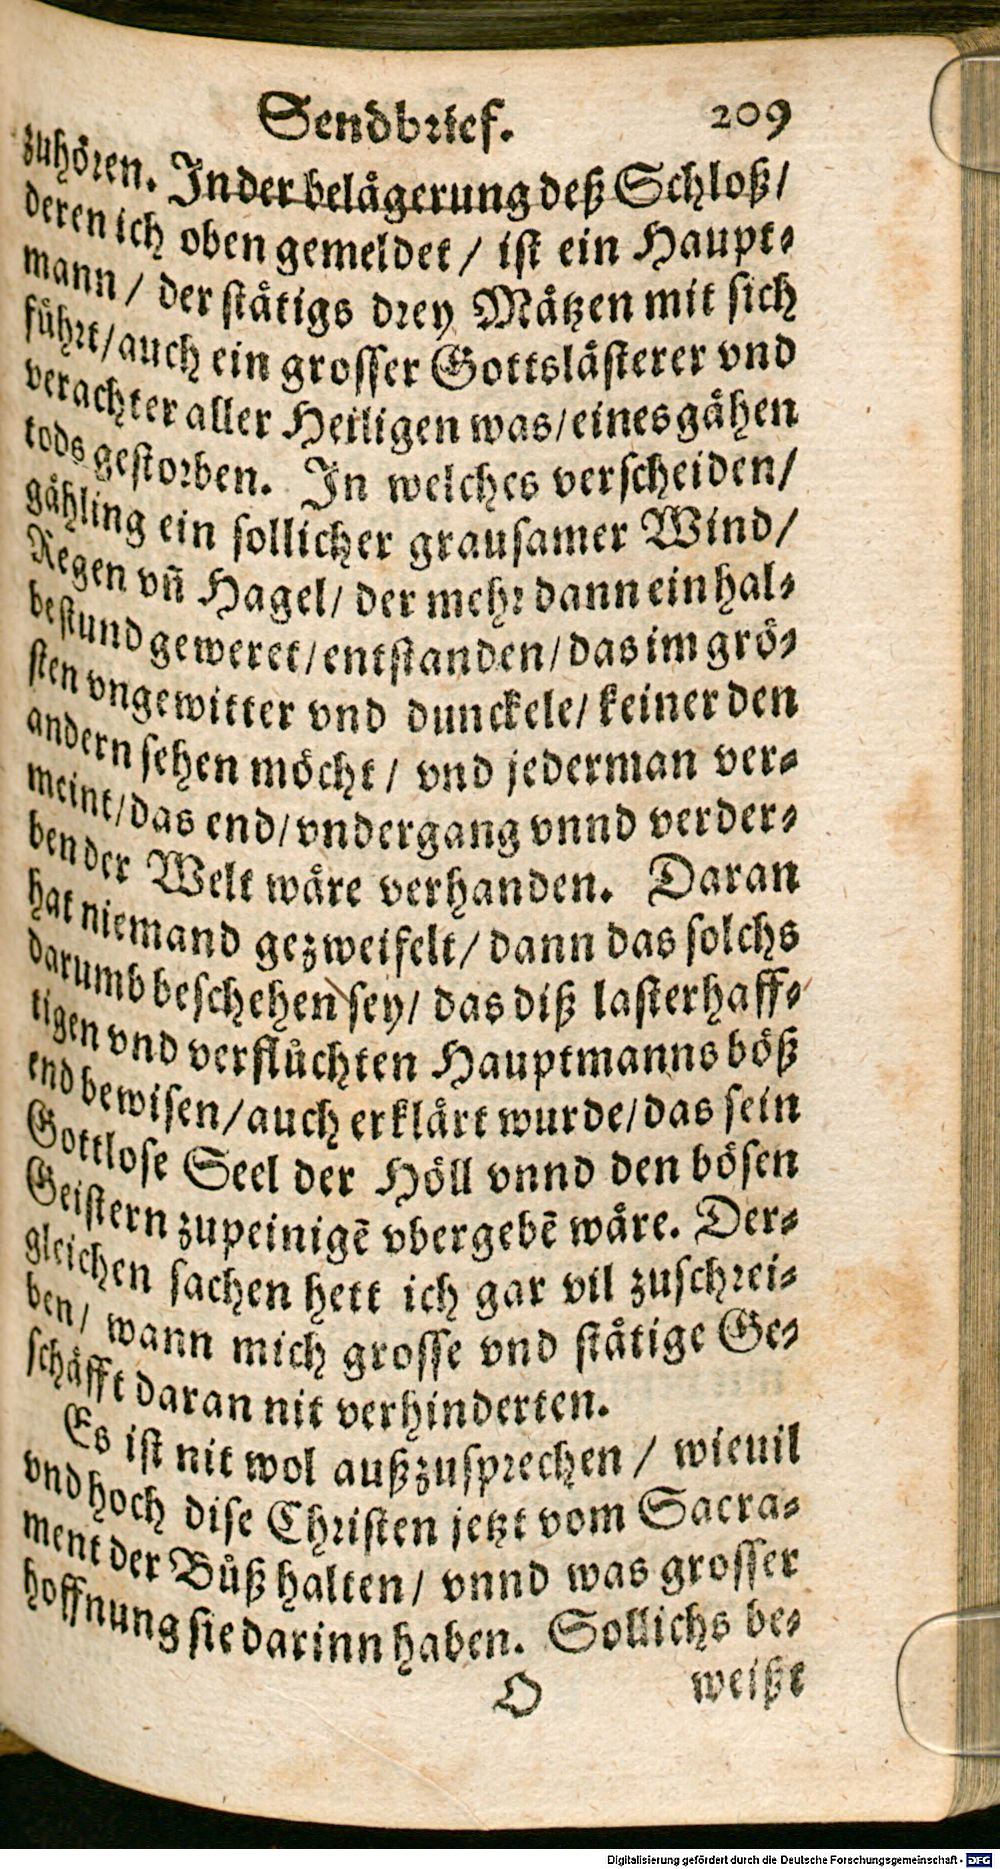 Sendbrief. 209
zuhören. In der belågerung deß Schloß/
deren ich oben gemeldet / ist ein Haupt⸗
mann / der ståtigs drey Måtzen mit sich
führt/auch ein grosser Gottslåsterer vnd
verachter aller Heiligen was/eines gåhen
tods gestorben. In welches verscheiden/
gåhling ein sollicher grausamer Wind/
Regen vñ Hagel/ der mehr dann ein hal⸗
be stund geweret/entstanden/das im grö⸗
sten vngewitter vnd dunckele/keiner den
andern sehen möcht / vnd jederman ver⸗
meint/das end/vndergang vnnd verder⸗
ben der Welt wåre verhanden. Daran
hat niemand gezweifelt/ dann das solchs
darumb beschehen sey/ das diß lasterhaff⸗
tigen vnd verflůchten Hauptmanns böß
end bewisen/auch erklårt wurde/das sein
Gottlose Seel der Höll vnnd den bösen
Geistern zupeinigẽ vbergebẽ wåre. Der⸗
gleichen sachen hett ich gar vil zuschrei⸗
ben/ wann mich grosse vnd ståtige Ge⸗
schåfft daran nit verhinderten.
Es ist nit wol außzusprechen / wieuil
vnd hoch dise Christen jetzt vom Sacra⸗
ment der Bůß halten/ vnnd was grosser
hoffnung sie darinn haben. Sollichs be⸗
O weißt
Digitalisierung gefördert durch die Deutsche Forschungsgemeinschaft - DFG